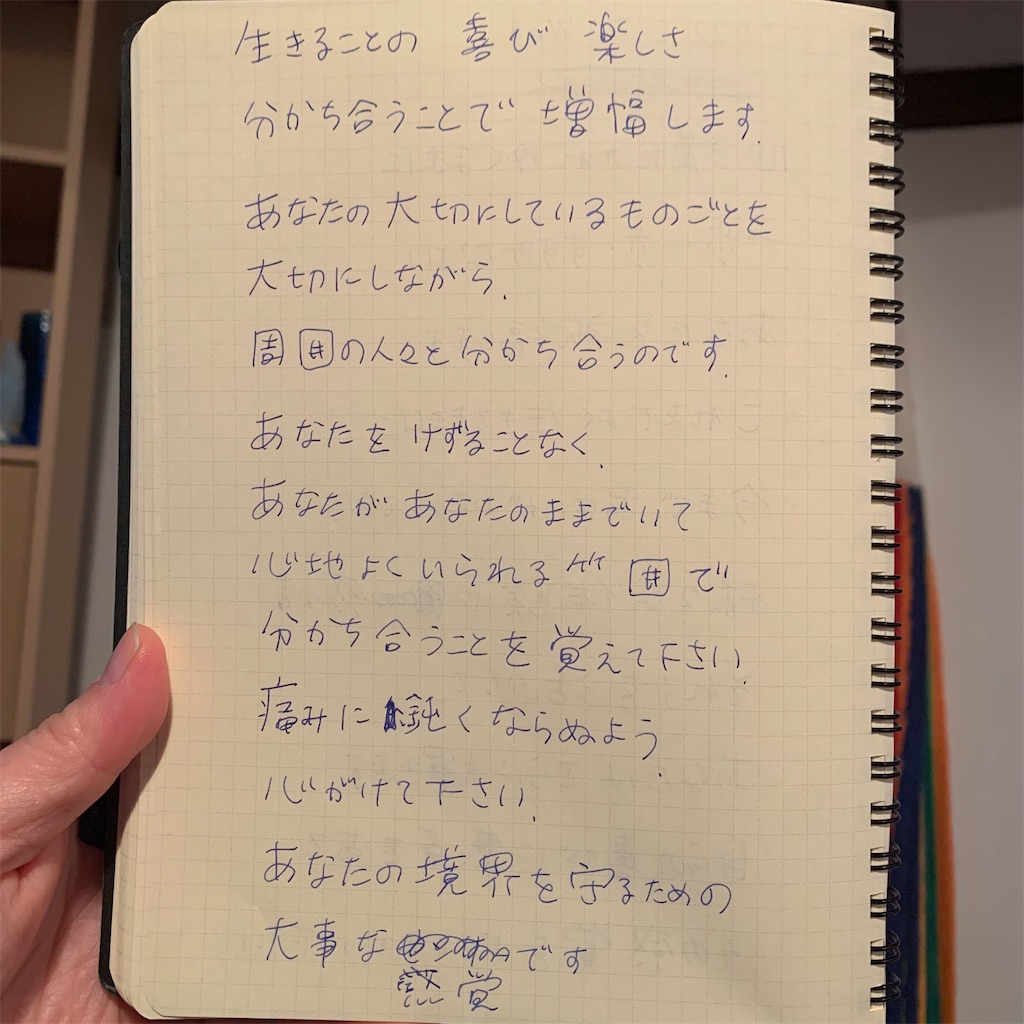 生きることの 喜び 楽しさ
分かち合うことで 増幅します.
あなたの大切にしているものごとを
大切にしながら.
周囲の人々と分かち合うのです.
あなたをけずることなく.
あなたが あなたのままでいて
心地よくいられる 囲で
分かち合うことを覚えて下さい.
痛みに 鈍くならぬよう.
心がけて下さい.
あなたの境界を守るための
大事な です
感覚